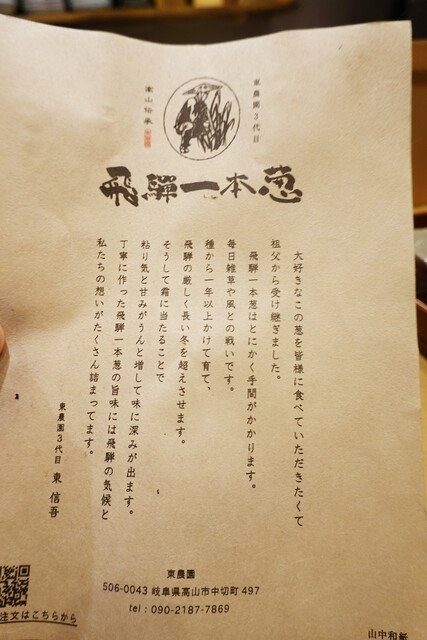 東農園3代目
飛騨一本葱
大好きなこの葱を皆様に食べていただきたくて
祖父から受け継ぎました。
飛騨一本葱はとにかく手間がかかります。
毎日雑草や風との戦いです。
種から一年以上かけて育て、
飛騨の厳しく長い冬を超えさせます。
そうして霜に当たることで
粘り気と甘みがうんと増して味に深みが出ます。
丁寧に作った飛騨一本葱の旨味には飛騨の気候と
私たちの想いがたくさん詰まってます。
東農園3代目 東 信吾
東農園
506-0043 岐阜県高山市中切町 497
tel : 090-2187-7869
注文はこちらから
山中和紙